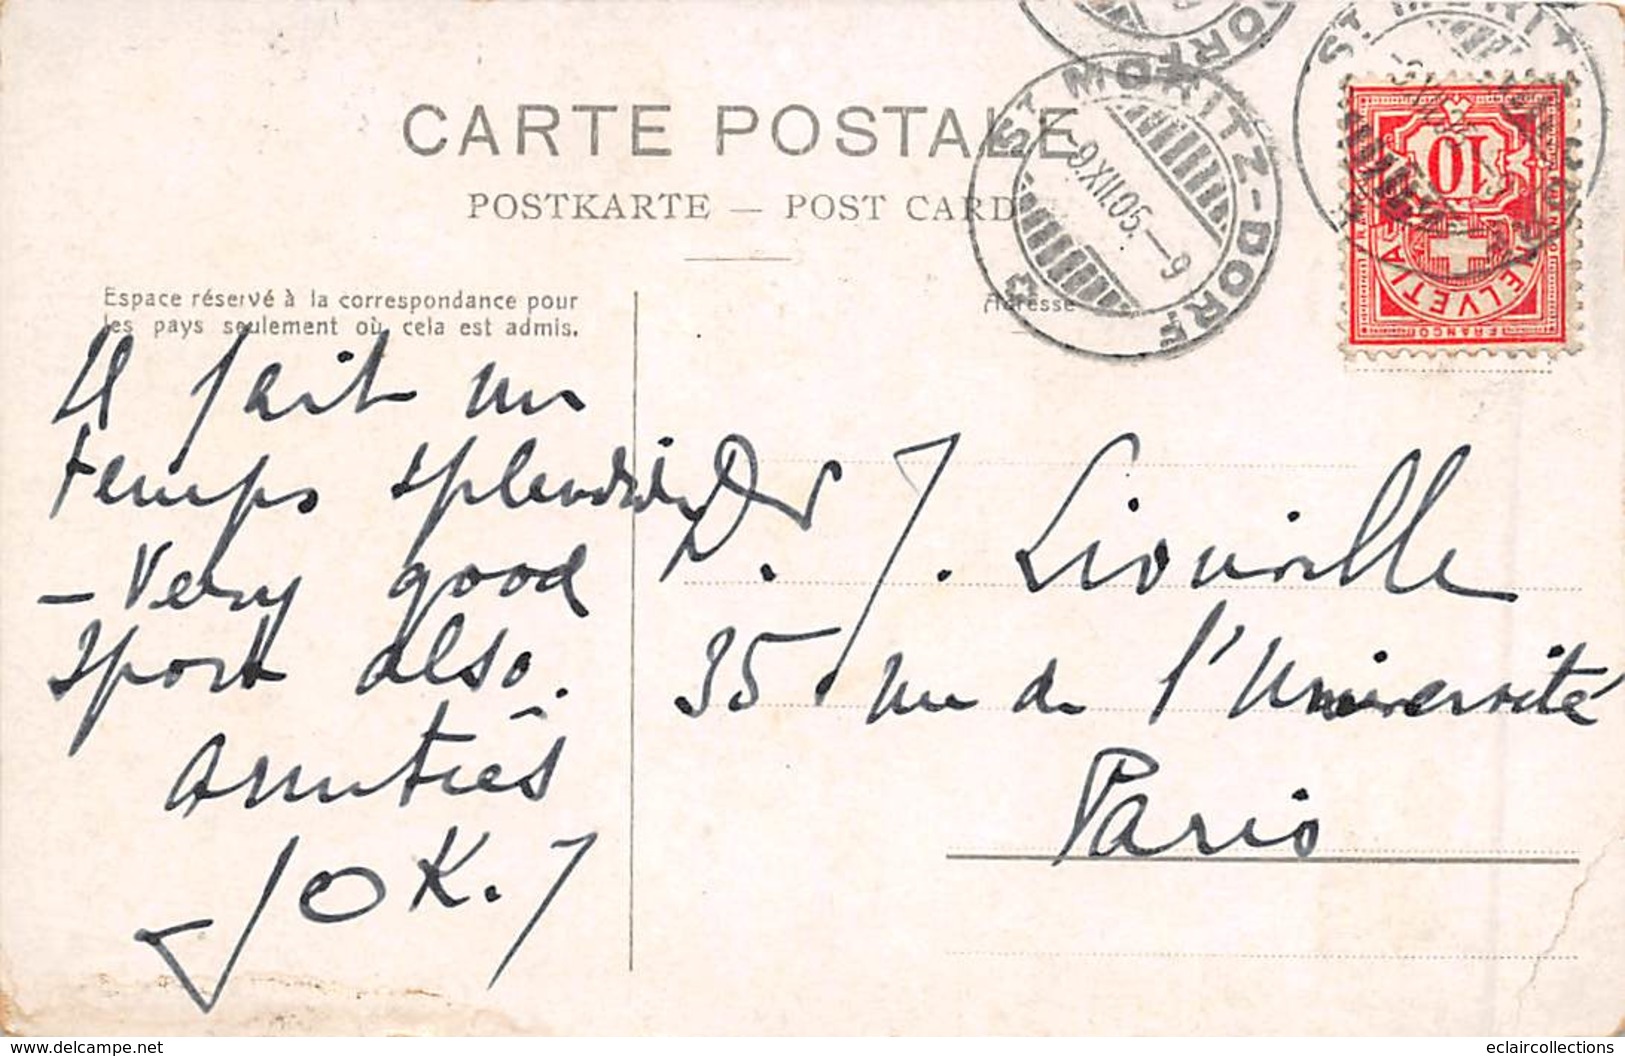 CARTE POSTALE
POSTKARTE — POST CARD
Espace réservé à la correspondance pour
les pays seulement où cela est admis.
Adresse
ST MORITZ-DORF
-9.XII.05.-9
ST MORITZ-DORF
DORF
10
HELVETIA
FRANCO
Il fait un
temps splendide
- Very good
sport also.
Amitiés
JOK.
Dr J. Liouville
35 rue de l'Université
Paris
delcampe.net
eclaircollections